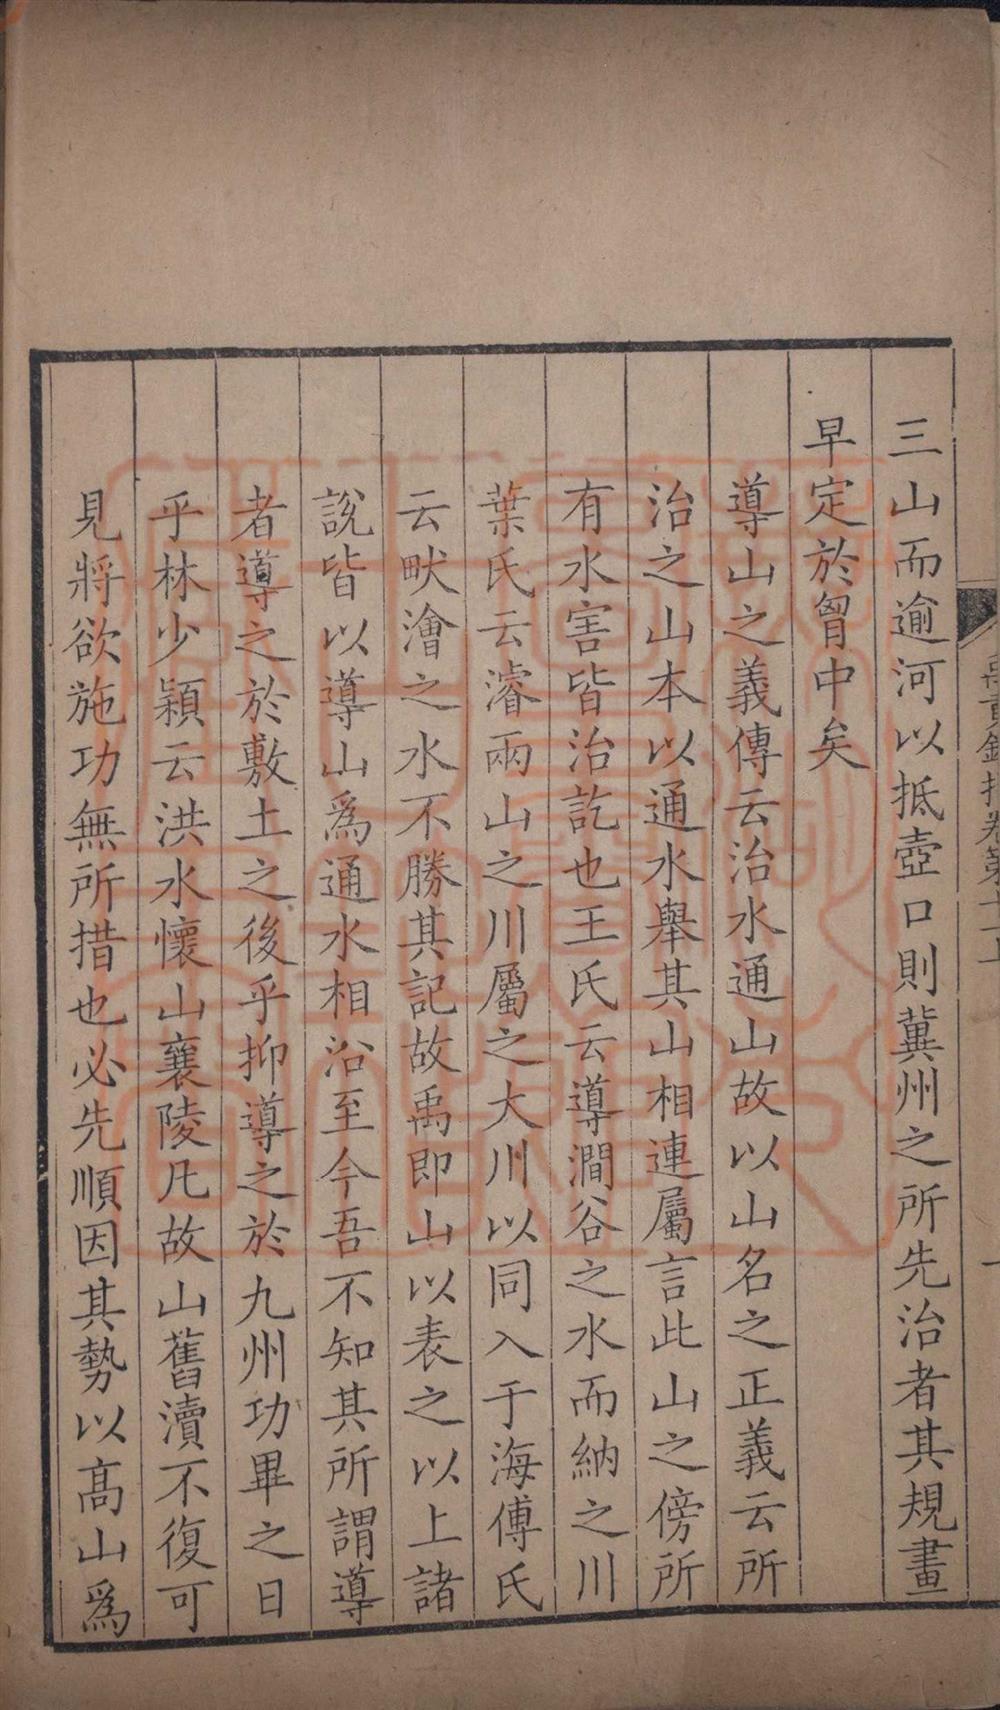 三山而逾河以抵壺口則冀州之所先治者其規畫
早定於胷中矣
導山之義傳云治水通山故以山名之正義云所
治之山本以通水舉其山相連屬言此山之傍所
有水害皆治訖也王氏云導澗谷之水而納之川
葉氏云濬兩山之川屬之大川以同入于海傅氏
云畎澮之水不勝其記故禹即山以表之以上諸
說皆以導山爲通水相沿至今吾不知其所謂導
者導之於敷土之後乎抑導之於九州功畢之日
乎林少穎云洪水懷山襄陵凡故山舊瀆不復可
見將欲施功無所措也必先順因其勢以高山爲